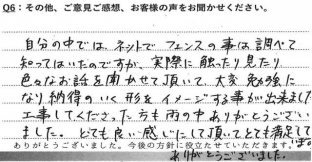 Q6：その他、ご意見ご感想、お客様の声をお聞かせください。
自分の中では、ネットでフェンスの事は調べて
知ってはいたのですが、実際に触ったり見たり、
色々なお話を聞かせて頂いて、大変勉強に
なり納得のいく形をイメージする事が出来ました。
工事してくださった方も雨の中ありがとうござい
ました。とても良い感じにして頂いてとても満足して
います。
ありがとうございました。今後の方針に役立たせていただきます。
ありがとうございました。